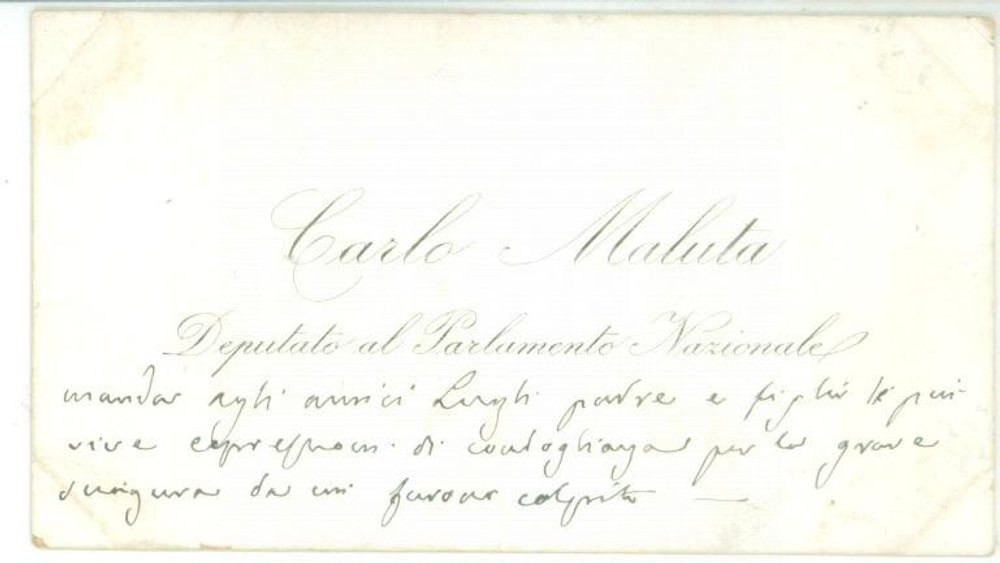 Carlo Maluta
Deputato al Parlamento Nazionale
manda agli amici Lugli padre e figlio le più
vive espressioni di condoglianza per la grave
sciagura da cui furono colpiti